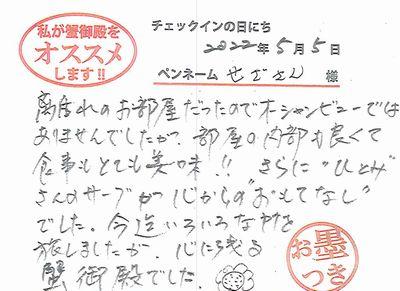 私が蟹御殿を
オススメ
します!!
チェックインの日にち
2022年5月5日
ペンネーム せざさん 様
離れのお部屋だったのでオーシャンビューでは
ありませんでしたが、部屋の内部も良くて
食事もとても美味!! さらに"ひとみ"
さんのサーブが心からの"おもてなし"
でした。今迄いろいろなやどを
旅しましたが、心に残る
蟹御殿でした。
お墨
つき